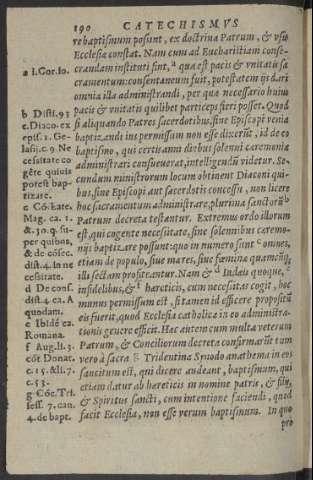 190 CATECHISMVS
re baptismum possunt, ex doctrina Patrum, & vsu
Ecclesiæ constat. Nam cum ad Eucharistiam conse-
crandam instituti sint, a qua est pacis & vnitatis sa
cramentum: consentaneum fuit, potestatem ijs dari
omnia illa administrandi, per quæ necessario huius
pacis & vnitatis quilibet particeps fieri posset. Quod
si aliquando Patres sacerdotibus, sine Episcopi venia
baptizandi ius permissum non esse dixerūt, id de eo
baptismo, qui certis anni diebus solenni cæremonia
administrari consueuerat, intelligendū videtur. Se-
cundum ministrorum locum obtinent Diaconi qui-
bus, sine Episcopi aut sacerdotis concessu, non licere
hoc sacramentum administrare, plurima sanctorū
Patrum decreta testantur. Extremus ordo illorum
est, qui cogente necessitate, sine solennibus cæremo-
nijs baptizare possunt: quo in numero sunt c omnes,
etiam de populo, siue mares, siue fœminæ quamcūq;
illi sectam profiteantur. Nam & d Iudæis quoque, e
infidelibus, & f hæreticis, cum necessitas cogit, hoc
munus permissum est, si tamen id efficere propositū
eis fuerit, quod Ecclesia catholica in eo administra-
tionis genere efficit. Hæc autem cum multa veterum
Patrum, & Conciliorum decreta confirmarūt tum
vero à sacra g Tridentina Synodo anathema in eos
sancitum est, qui dicere audeant, baptismum, qui
etiam datur ab hæreticis in nomine patris, & filij,
& Spiritus sancti, cum intentione faciendi, quod
facit Ecclesia, non esse verum baptismum. In quo
pro
a 1. Cor. 10.
b Dist. 93
c. Diaco. ex
epist. 1. Ge-
lasij. c. 9. Ne
cessitate co
gēte quiuis
potest bap-
tizare.
c Cō. Late.
Mag. ca. 1.
& 30. q. su-
per quibus,
& de cōsec.
dist. 4. In ne
cessitate.
d De cons.
dist. 4. ca. A
quodam.
e Ibidē ca.
Romana.
f Aug. li. 3.
cōt Donat.
c. 15. & li. 7.
c. 53.
g Cōc. Tri.
sess. 7. can.
4. de bapt.